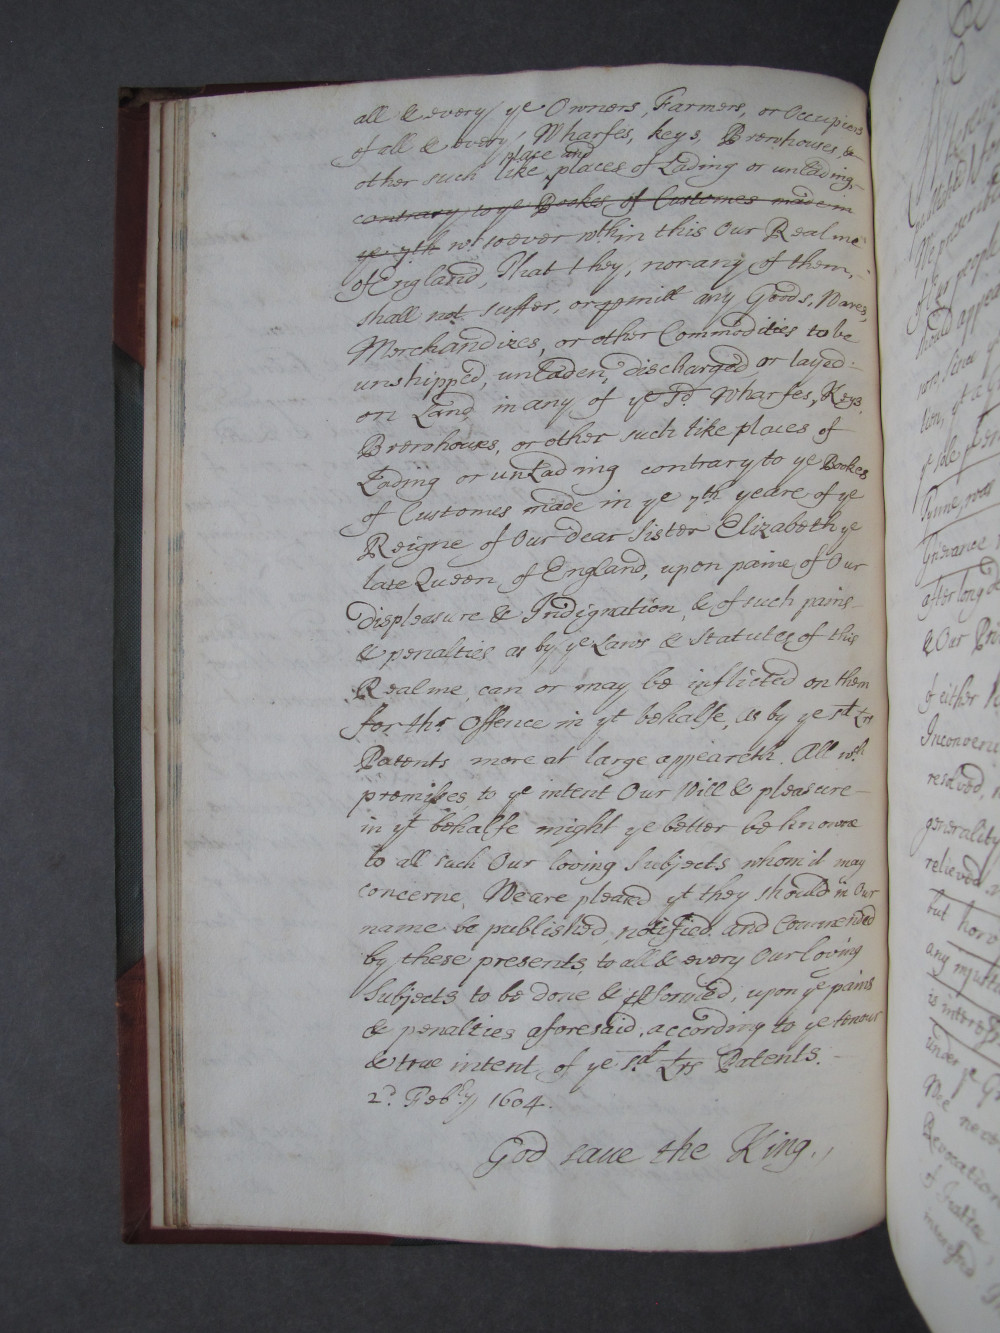 all & every ye Owners, Farmers, or Occupiers
of all & every Wharfes, keys, Brewhouses, &
place and
other such like places of Lading or unlading,
contrary to ye Bookes of Customes made in
ye 7th wt soever wthin this Our Realme
of England, That they, nor any of them,
shall not suffer, or pmitt any Goods, Wares,
Merchandizes, or other Commodities to be
unshipped, unladen, discharged or layed
on Land in any of ye sd Wharfes, Keys,
Brewhouses, or other such like places of
Lading or unlading contrary to ye Bookes
of Customes made in ye 7th yeare of ye
Reigne of Our dear Sister Elizabeth ye
late Queen of England, upon paine of Our
displeasure & Indignation, & of such pains
& penalties as by ye Laws & Statutes of this
Realme can or may be inflicted on them
for thr Offence in yt behalfe, as by ye sd Lrs
Patents more at large appeareth. All wch
premises, to ye intent Our Will & pleasure
in yt behalfe might ye better be knowne
to all such Our loving Subjects whom it may
concerne, We are pleased yt they should in Our
name be published, notified, and Commended
by these presents, to all & every Our loving
Subjects to be done & pformed, upon ye pains
& penalties aforesaid, according to ye tenour
& true intent of ye sd Lrs Patents.
2d. Febry 1604.
God save the King.